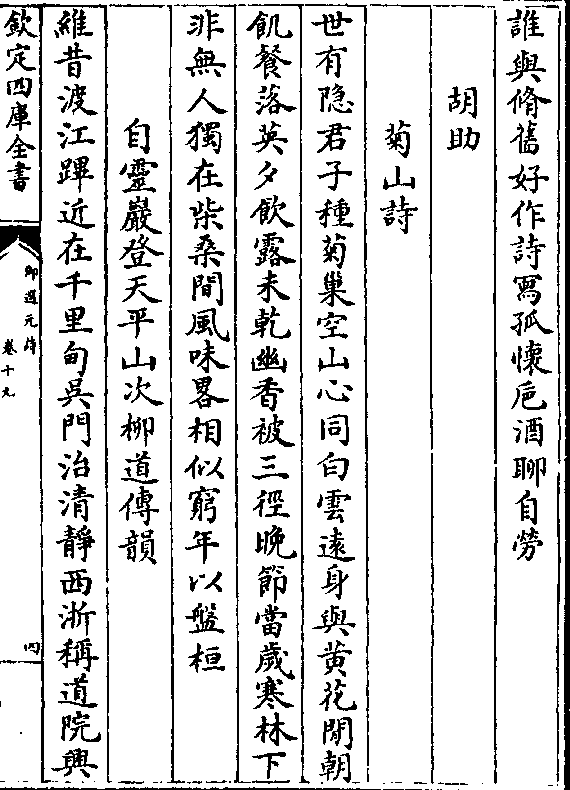 誰與脩舊好作詩寫孤懷巵酒聊自勞
胡助
菊山詩
世有隐君子種菊巢空山心同白雲遠身與黄花閒朝
飢餐落英夕飲露未乾幽香被三徑晚節當歲寒林下
非無人獨在柴桑間風味畧相似窮年以盤桓
自靈巖登天平山次栁道傳韻
維昔渡江蹕近在千里甸吳門治清靜西浙稱道院興
欽定四庫全書
御選元詩
卷十九
四